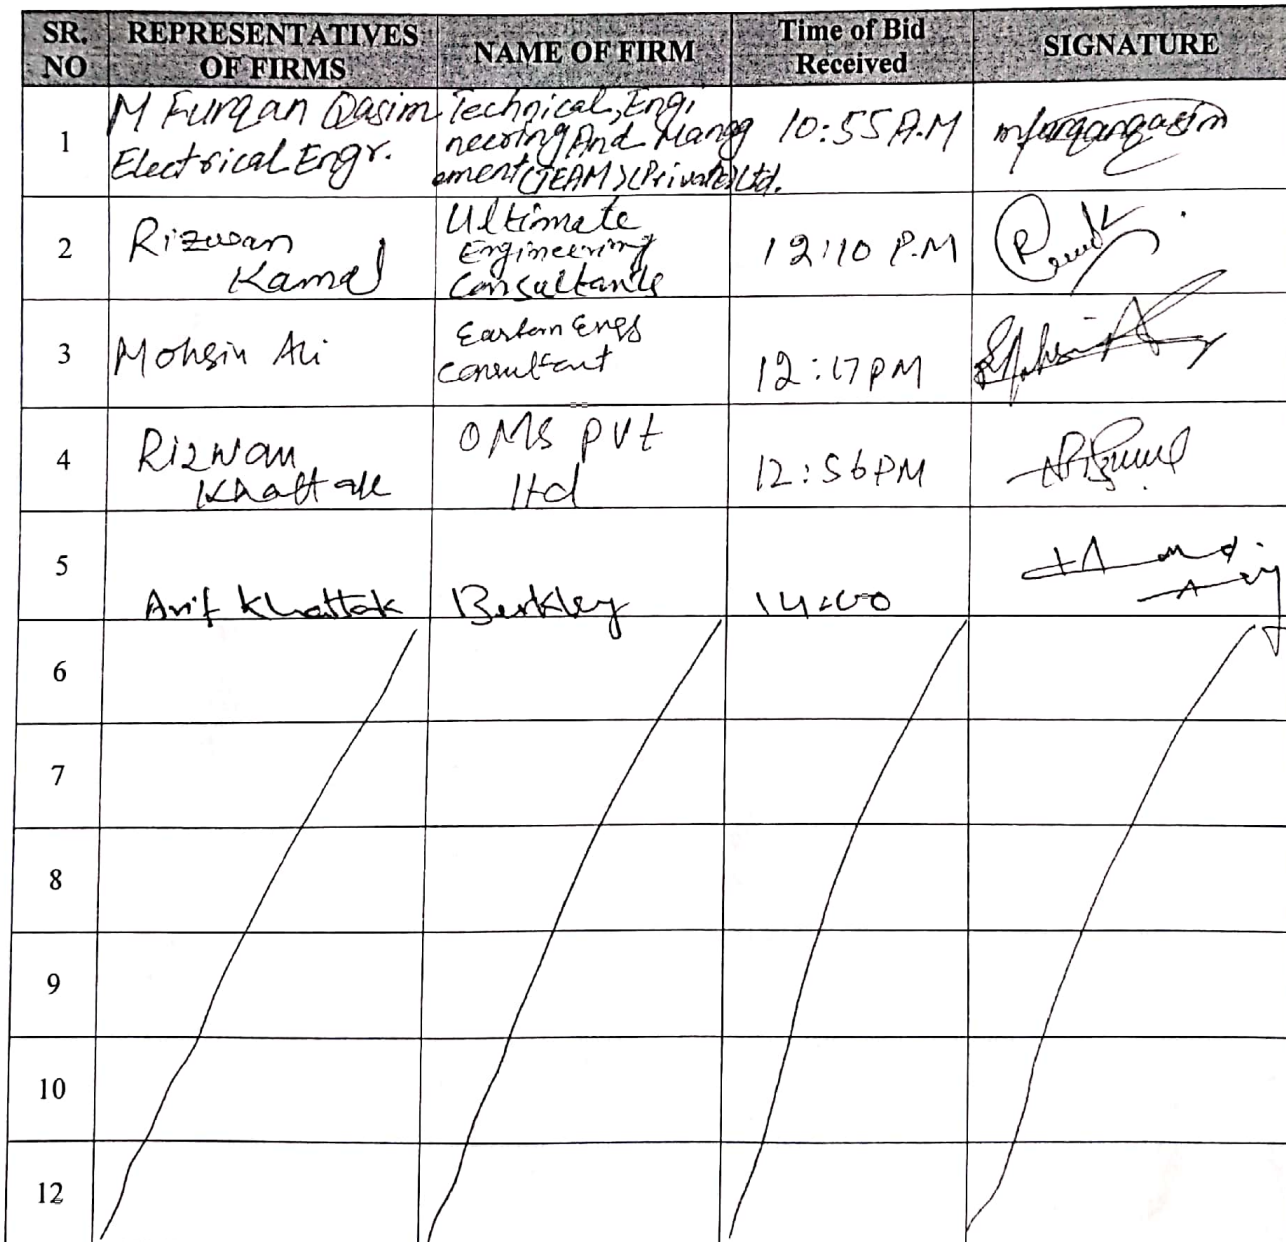 SR. NO REPRESENTATIVES OF FIRMS NAME OF FIRM Time of Bid Received SIGNATURE
1 M Furqan Qasim Electrical Engr. Technical, Engineering And Management (TEAM) (Private) Ltd. 10:55 A.M mfurqanqasim
2 Rizwan Kamal Ultimate Engineering Consultants 12:10 P.M
3 Mohsin Ali Eastern Engg Consultant 12:17 PM
4 Rizwan Khattak OMS PVt ltd 12:56 PM
5 Arif Khattak Berkley 14:00
6
7
8
9
10
12